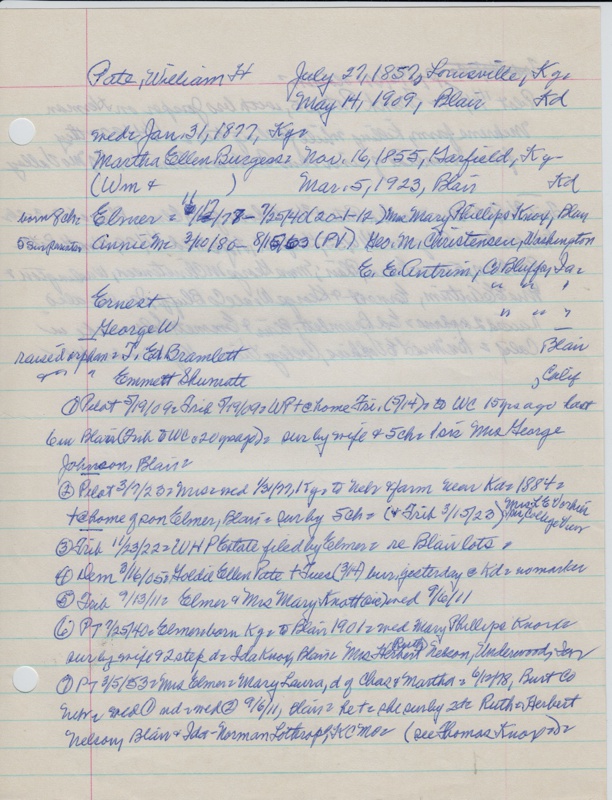 Pate, William H July 27, 1857, Louisville, Ky.
May 14, 1909, Blair Kd
wed= Jan. 31, 1877, Ky=
Martha Ellen Burgess= Nov. 16, 1855, Garfield, Ky-
(Wm & ) Mar. 5, 1923, Blair Kd
born 9 chn Elmer = 11/12/77- 7/25/40 (20-1-12) Mrs Mary Phillips Knox, Blair
5 survivors Annie M= 3/10/80- 8/15/63 (PV) Geo. M. Christensen, Washington
E. E. Antrim, C Bluffs, Ia=
Ernest " " "
George W Blair
raised orphan = J. Ed Bramlett
" " Emmett Shumate , Calif
① Pilot 5/19/09= Trib 5/19/09= WP + @ home Fri. (5/14)= to WC 15 yrs ago last
6 in Blair (Trib to WC @ 20 yrs ago)= sur by wife & 5 ch= 1 sis Mrs George
Johnson, Blair=
② Pilot 3/7/23= Mrs= wed 1/31/77, Ky= to Nebr & farm near Kd= 1884=
+ @ home of son Elmer, Blair= sur by 5 ch= (& Trib 3/15/23) Mrs L E
College View
③ Trib 11/23/22= W H P Estate filed by Elmer= re Blair lots=
④ Dem 3/16/05= Goldie Ellen Pate + Tues (3/14) bur yesterday @ Kd= no marker
⑤ Trib 9/13/11= Elmer & Mrs Mary Knott (sic) wed 9/6/11
⑥ PT 7/25/40= Elmer= born Ky= to Blair 1901= wed Mary Phillips Knox=
sur by wife & 2 step d= Ida Knox, Blair= Mrs Herbert (Ruth) Nelson, Underwood, Ia=
⑦ PT 3/5/53= Mrs Elmer= Mary Laura, d of Chas & Martha= 6/12/78, Burt Co
Nebr= wed ① nd= wed ② 9/6/11, Blair= he + she sur by 2 ch Ruth= Herbert
Nelson, Blair & Ida= Norman Lothrop, KC Mo= (see Thomas Knox)=